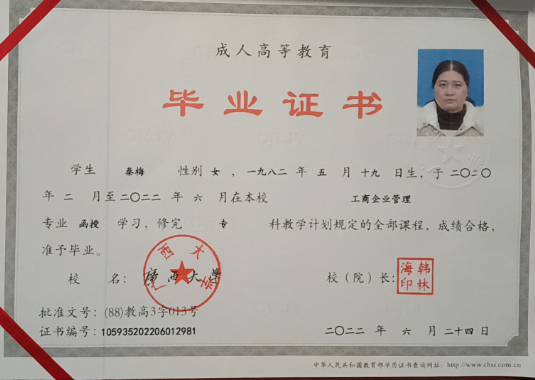 成人高等教育
毕业证书
学生 秦梅 性别 女，一九八二年 五 月 十九 日生，于 二〇二〇
年 二 月至 二〇二二 年 六 月在本校 工商企业管理
专业 函授 学习，修完 专 科教学计划规定的全部课程，成绩合格，
准予毕业。
校 名：广西大学 校（院）长：
广西大学
韩林海印
批准文号：(88)教高3字013号
证书编号：105935202206012981 二〇二二 年 六 月 二十四 日
中华人民共和国教育部学历证书查询网址：http://www.chsi.com.cn